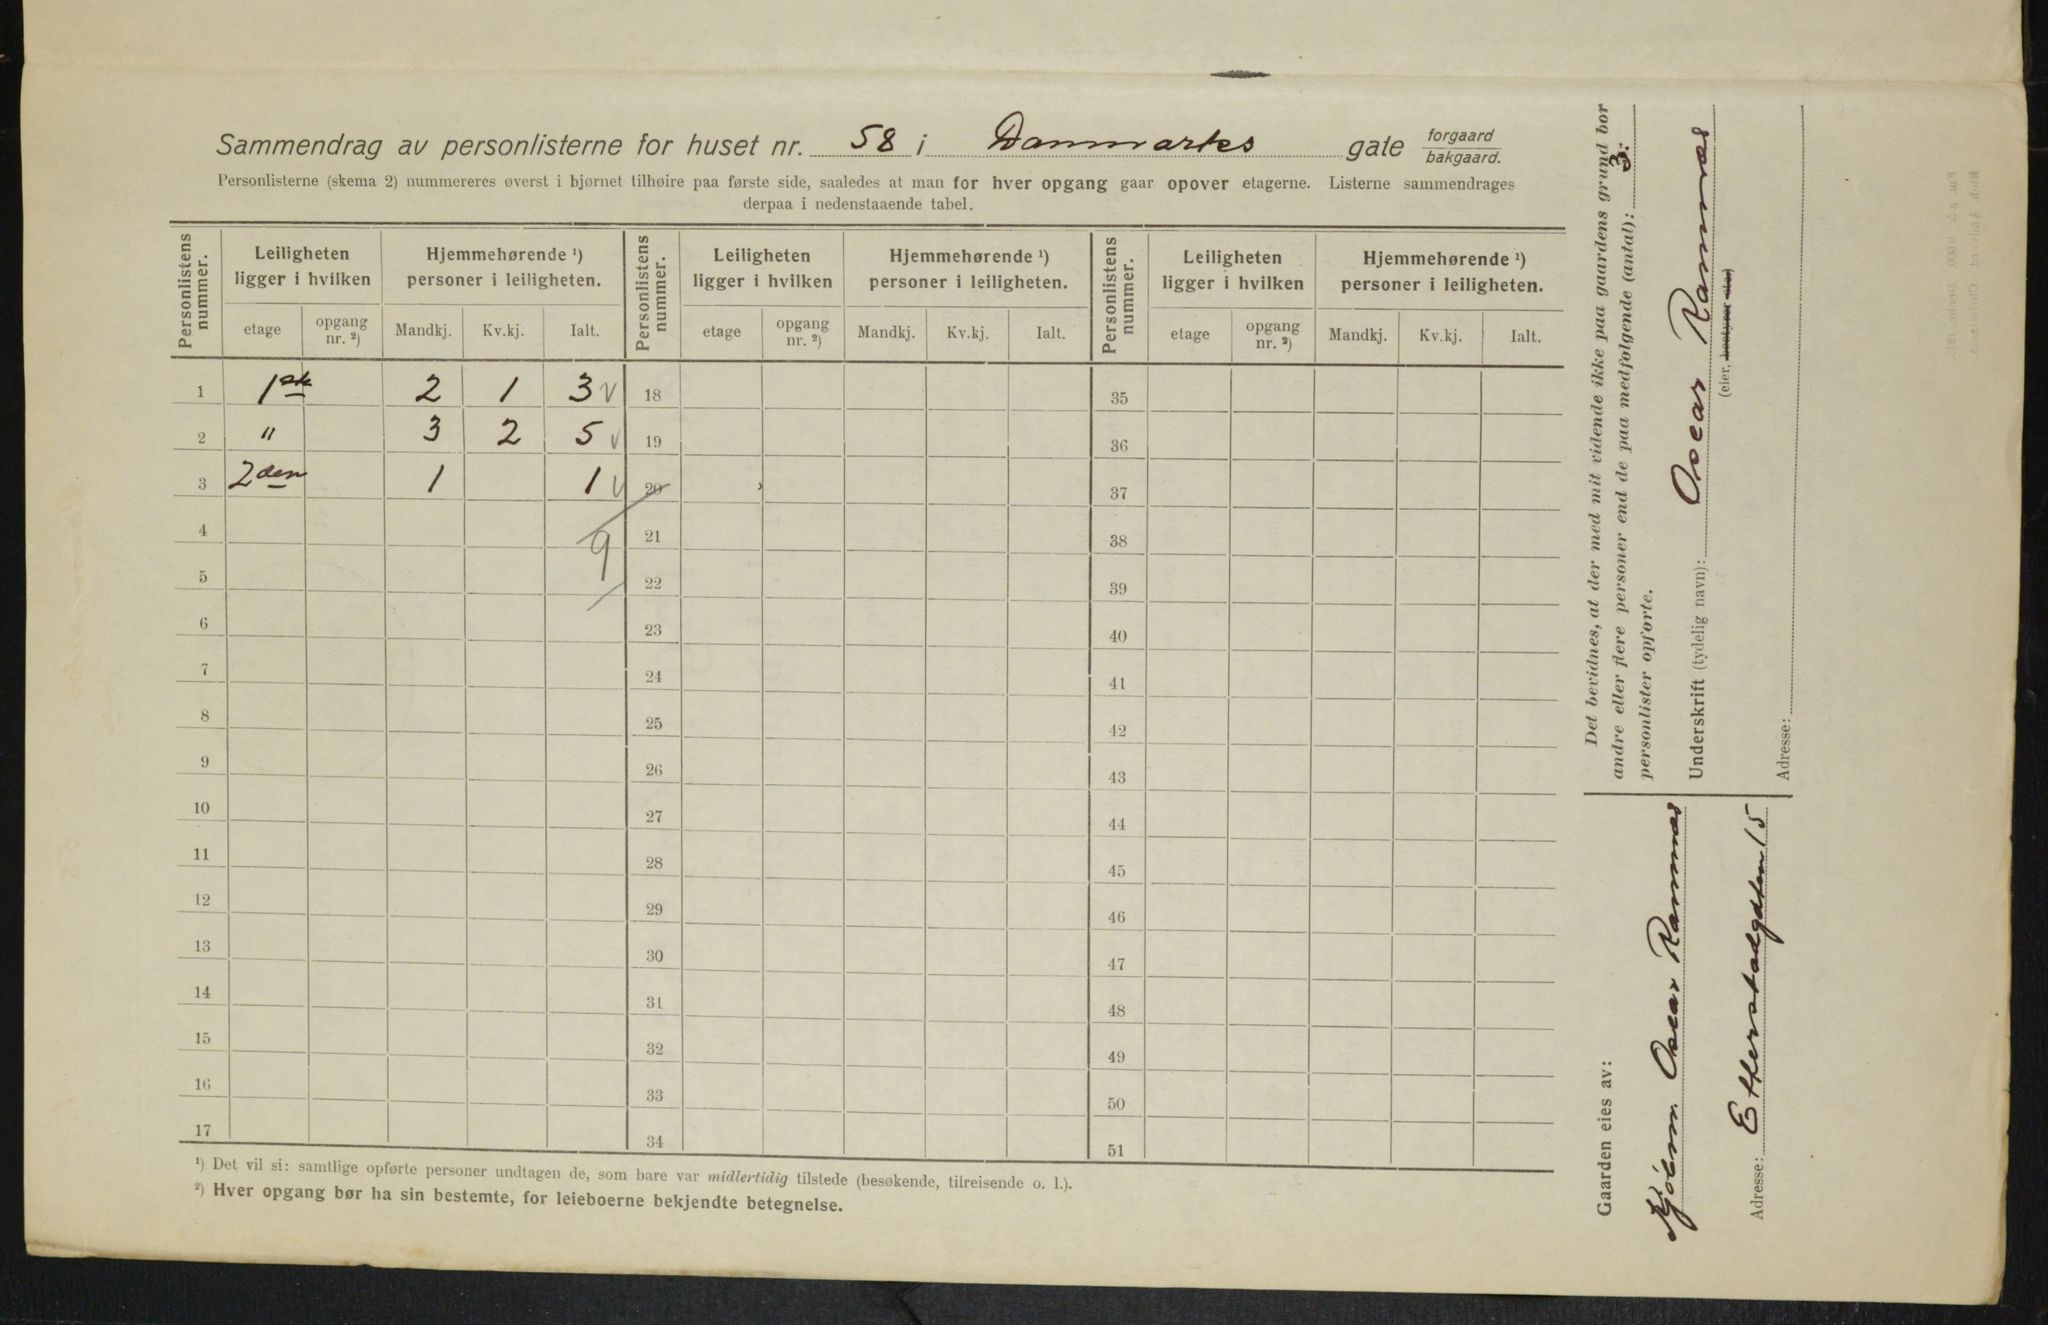 Sammendrag av personlisterne for huset nr. 58 i Danmarks gate forgaard
bakgaard.
Personlisterne (skema 2) nummereres øverst i hjørnet tilhøire paa første side, saaledes at man for hver opgang gaar opover etagerne. Listerne sammendrages
derpaa i nedenstaaende tabel.
Personlistens nummer. Leiligheten ligger i hvilken Hjemmehørende ¹) personer i leiligheten. Personlistens nummer. Leiligheten ligger i hvilken Hjemmehørende ¹) personer i leiligheten. Personlistens nummer. Leiligheten ligger i hvilken Hjemmehørende ¹) personer i leiligheten.
etage opgang nr. ²) Mandkj. Kv.kj. Ialt. etage opgang nr. ²) Mandkj. Kv.kj. Ialt. etage opgang nr. ²) Mandkj. Kv.kj. Ialt.
1 1ste 2 1 3 v 18 35
2 " 3 2 5 v 19 36
3 2den 1 1 v 20 37
4 9 21 38
5 22 39
6 23 40
7 24 41
8 25 42
9 26 43
10 27 44
11 28 45
12 29 46
13 30 47
14 31 48
15 32 49
16 33 50
17 34 51
¹) Det vil si: samtlige opførte personer undtagen de, som bare var midlertidig tilstede (besøkende, tilreisende o. l.).
²) Hver opgang bør ha sin bestemte, for leieboerne bekjendte betegnelse.
Det bevidnes, at der med mit vidende ikke paa gaardens grund bor
andre eller flere personer end de paa medfølgende (antal): 3
personlister opførte.
Underskrift (tydelig navn): Oscar Ramnæs
(eier, bestyrer etc.)
Adresse:
Gaarden eies av:
Kjøbm. Oscar Ramnæs
Adresse: Etterstadgden 15